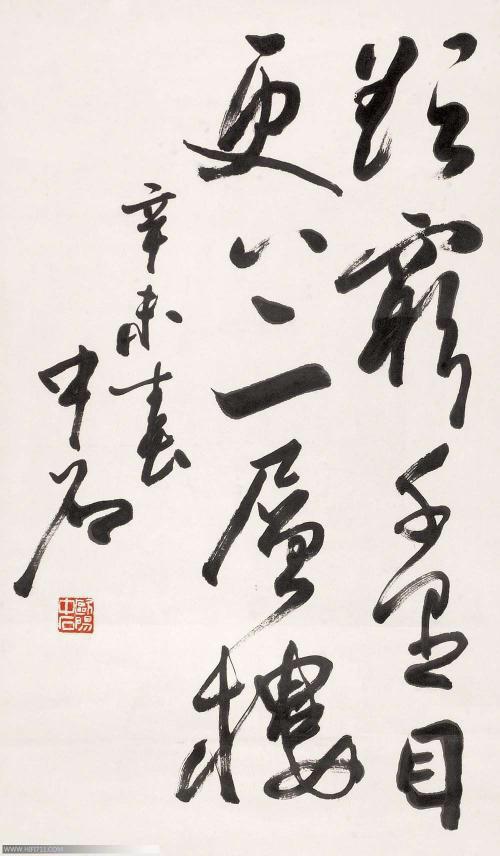 欲窮千里目
更上一層樓
辛未春
中石
歐陽中石